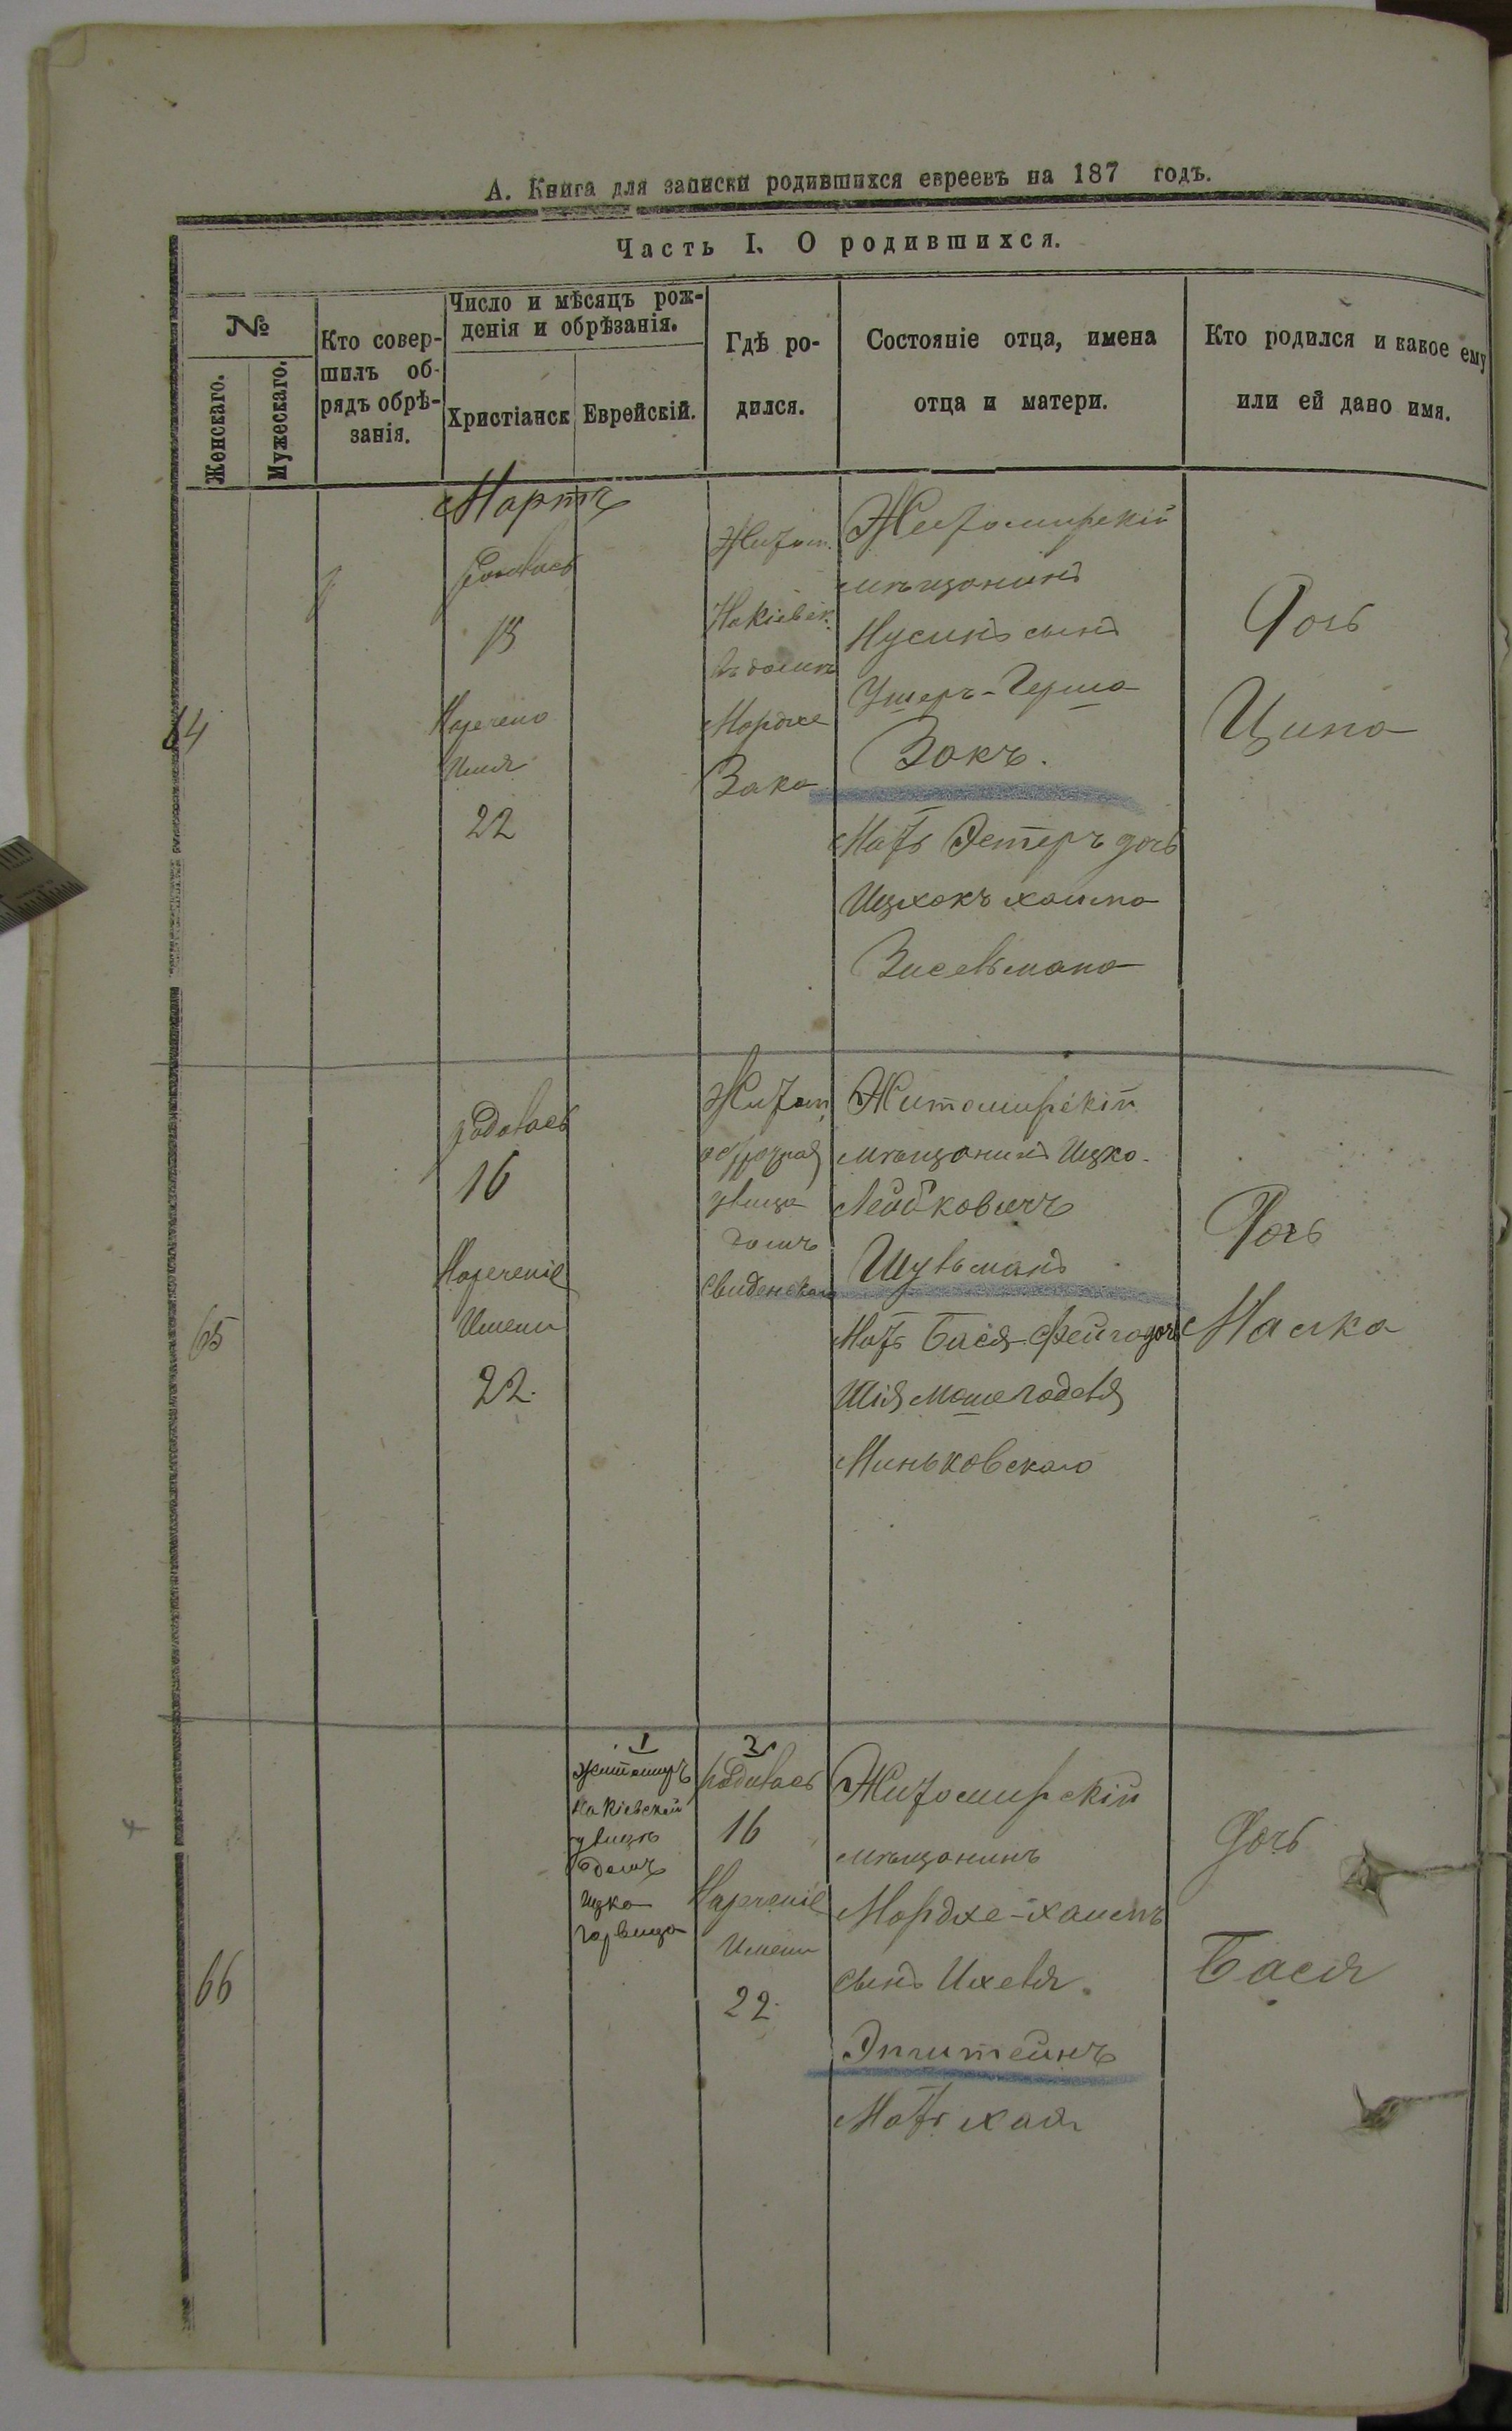 А. Книга для записки родившихся евреевъ на 187 годъ.
Часть I. О родившихся.
№
Женскаго.
Мужескаго.
Кто совер-
шилъ об-
рядъ обрѣ-
занія.
Число и мѣсяцъ рож-
денія и обрѣзанія.
Христіанск
Еврейскій.
Гдѣ ро-
дился.
Состояніе отца, имена
отца и матери.
Кто родился и какое ему
или ей дано имя.
Мартъ
64
Родилась
13
Наречено
Имя
22
Житом.
На Кіевск.
въ домѣ
Мордхе
Зака
Житомирскій
мѣщанинъ
Нусинъ сынъ
Ушеръ-Герша
Закъ.
Мать Эстеръ дочь
Ицхокъ хаима
Зисельмана
Дочь
Ципа
65
родилась
16
Нареченіе
Имени
22.
Житом
улица
домъ
Свиденскаго
Житомирскій
мѣщанинъ Ицко-
Лейбковичъ
Шульманъ
Мать Бася-Фейга дочь
Шія Моше
Миньковскаго
Дочь
Малка
66
1
Житомиръ
На Кіевской
улицѣ
домъ
Ицка
Горвица
2
родилась
16
Нареченіе
Имени
22.
Житомирскій
мѣщанинъ
Мордхе-хаимъ
сынъ Ихеля
Эпштейнъ
Мать хая
Дочь
Бася